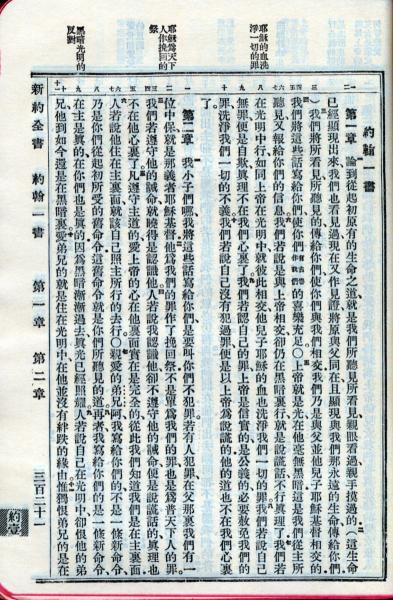 約翰一書
第一章 論到從起初原有的生命之道就是我們所聽見所看見親眼看過親手摸過的（這生命
已經顯現出來我們也看見過現在又作見證將原與父同在且顯現與我們那永遠的生命傳給你們
）我們將所看見所聽見的傳給你們使你們與我們相交我們乃是與父並他兒子耶穌基督相交的。
我們將這些話寫給你們使你們有古卷作我們的喜樂充足○上帝就是光在他毫無黑暗這是我們從主所
聽見又報給你們的信息我們若說是與上帝相交卻仍在黑暗裏行就是說謊話不行真理了我們若
在光明中行如同上帝在光明中就彼此相交他兒子耶穌的血也洗淨我們一切的罪我們若說自己
無罪便是自欺真理不在我們心裏了我們若認自己的罪上帝是信實的是公義的必要赦免我們的
罪洗淨我們一切的不義我們若說自己沒有犯過罪便是以上帝為說謊的他的道也不在我們心裏
了。
第二章 我小子們哪我將這些話寫給你們是要叫你們不犯罪若有人犯罪在父那裏我們有一
位中保就是那義者耶穌基督他為我們的罪作了挽回祭不是單為我們的罪也是為普天下人的罪。
我們若遵守他的誡命就曉得是認識他人若說我認識他卻不遵守他的誡命便是說謊話的真理也
不在他心裏了凡遵守主道的愛上帝的心在他裏面實在是完全的從此我們知道我們是在主裏面。
人若說他住在主裏面就該自己照主所行的去行○親愛的弟兄阿我寫給你們的不是一條新命令
乃是你們從起初所受的舊命令這舊命令就是你們所聽見的道再者我寫給你們的是一條新命令
在主是真的在你們也是真的因為黑暗漸漸過去真光已經照耀人若說自己在光明中卻恨他的弟
兄他到如今還是在黑暗裏愛弟兄的就是住在光明中在他並沒有絆跌的緣由惟獨恨弟兄的是在
新約全書 約翰一書 第一章 第二章 三百二十一
耶穌的血洗
淨一切的罪
耶穌為天下
人作挽回的
祭
黑暗光明的
反對